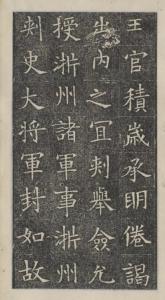 王官積歲承明倦謁
出內之冝刾舉僉允
授淅州諸軍事淅州
刾史大將軍封如故